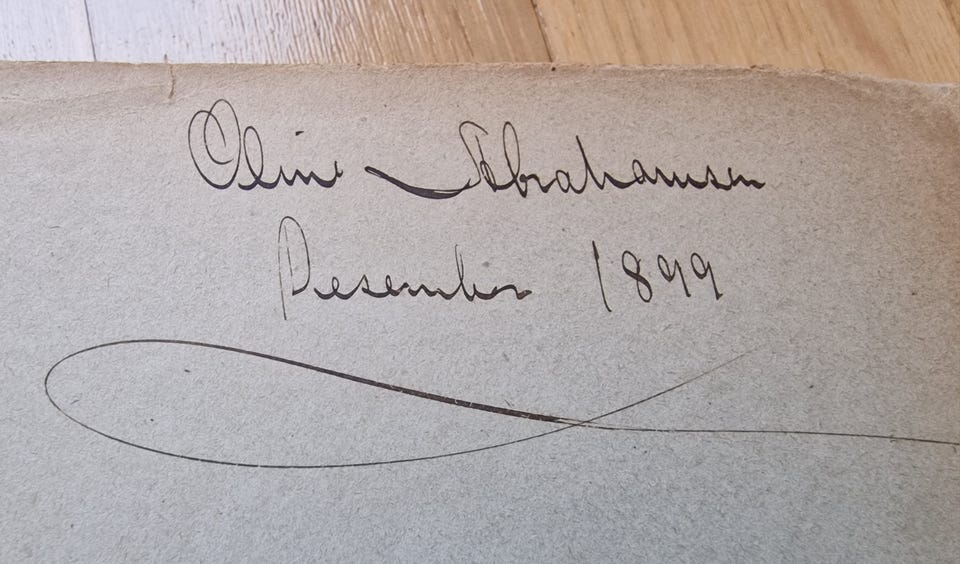 Oline Abrahamsen
Desember 1899